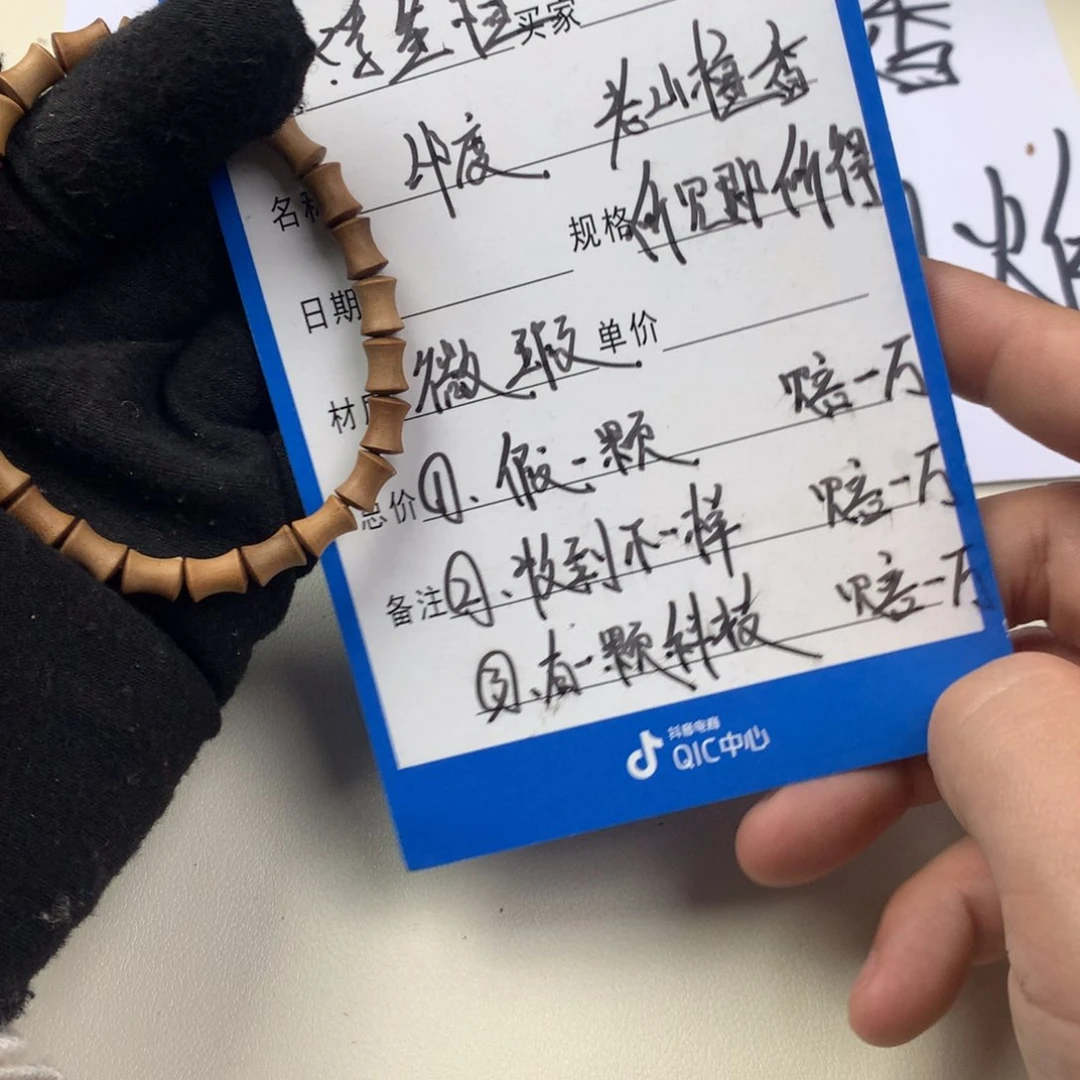 买家
名称 印度 老山檀香
规格 所见即所得
日期
材 微瑕 单价
总价 ①、假一颗 赔一万
备注 ②、收到不一样 赔一万
③、有一颗科技 赔一万
抖音电商
QIC中心
香
火